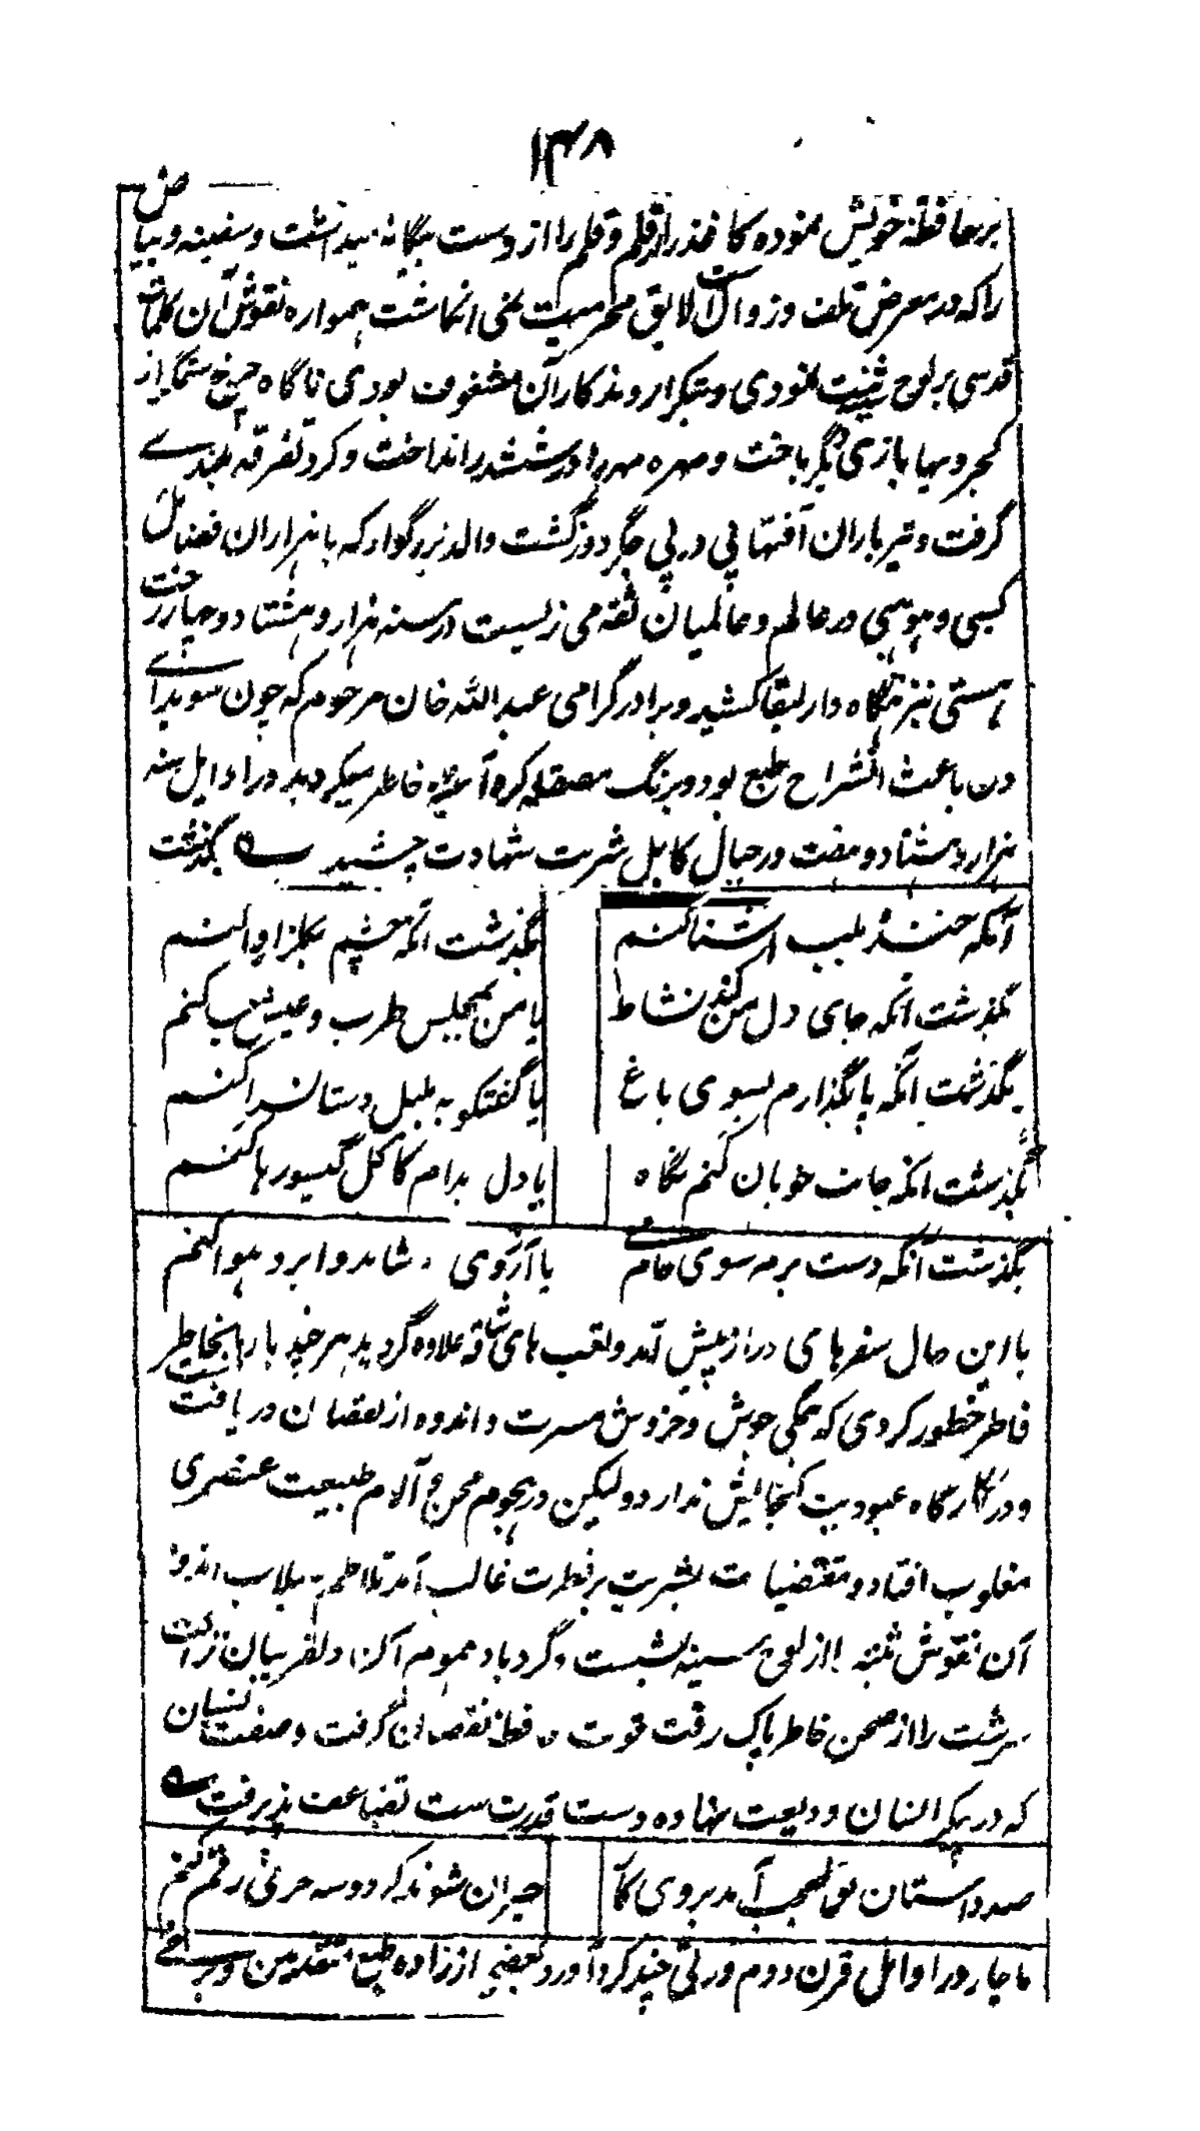 ۱۴۸
بر حافظهٔ خویش نموده کاغذ را از قلم و قلم را از دست بیگانه میداشت و سفینه و بیاض
را که در معرض تلف و زوال است لایق محرمیت نمی انگاشت همواره نقوش آن کلمات
قدسی بر لوح مثبت نمودی و بتکرار و تذکار آن مشغوف بودی ناگاه چرخ ستمگر از
کجرویها بازی دیگر باخت و مهره مهر را در ششدر انداخت و گرد تفرقه بلندے
گرفت و تیرباران آفتها پی در پی جگردوز گشت والد بزرگوار که با هزاران فضائل
کسبی و موهبی در عالم و عالمیان ثقه می زیست در سنه هزار و هشتاد و چهار رخت
هستی بنزهتگاه دار البقا کشید و برادر گرامی عبد الله خان مرحوم که چون سویداے
دل باعث انشراح طبع بود و برنگ مصقله کره آئینه خاطر میگردید در اوایل سنه
هزار و هشتاد و هفت در جبال کابل شربت شهادت چشید ے بگذشت
آنکه خنده بلب آشنا کنم بگذشت آنکه چشم بگلزار وا کنم
بگذشت آنکه جای دل من کند نشاط یا من بمجلس طرب و عیش جا کنم
بگذشت آنکه پا بگذارم بسوی باغ یا گفتگو به بلبل دستانسرا کنم
بگذشت آنکه جانب خوبان کنم نگاه یا دل بدام کاکل گیسو رها کنم
بگذشت آنکه دست برم سوی جام مے یا آرزوی شاهد و ابر و هوا کنم
با این حال سفرهای دراز پیش آمد و تعب های شاقه علاوه گردید هر چند بارها بخاطر
فاطر خطور کردی که همگی جوش و خروش مسرت و اندوه از نقصان دریافت است
و در کارگاه عبودیت گنجائیش ندارد و لیکن در هجوم محن و آلام طبیعت عنصری
مغلوب افتاد و مقتضیات بشریت بر فطرت غالب آمد تلاطم سیلاب اندوه
آن نقوش مثبته را از لوح سینه بشست و گردباد هموم آن دلفریبان نزاکت
سرشت را از صحن خاطر پاک رفت قوت حافظه نقصان گرفت و صفت نسیان
که در پیکر انسان ودیعت نهاده دست قدرت ست تضاعف پذیرفت ے
صد داستان بوالعجب آمد بروی کار حیران شوند گر دو سه حرفی رقم کنم
ناچار در اوائل قرن دوم ورقی چند گرد آورد بعضی از زاده طبع متقدمین و برخے